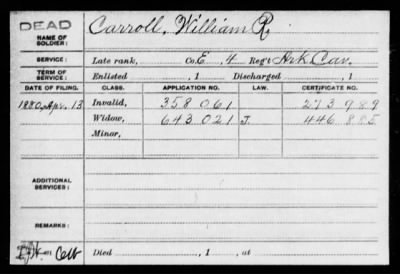 DEAD
NAME OF SOLDIER: Carroll, William R.
SERVICE: Late rank, Co. E, 4 Reg't Ark Cav.
TERM OF SERVICE: Enlisted , 1 Discharged , 1
DATE OF FILING. CLASS. APPLICATION NO. LAW. CERTIFICATE NO.
1880, Apr. 13 Invalid, 358 061 273 989
Widow, 643 021 J. 446 885
Minor,
ADDITIONAL SERVICES:
REMARKS:
Died , 1 , at